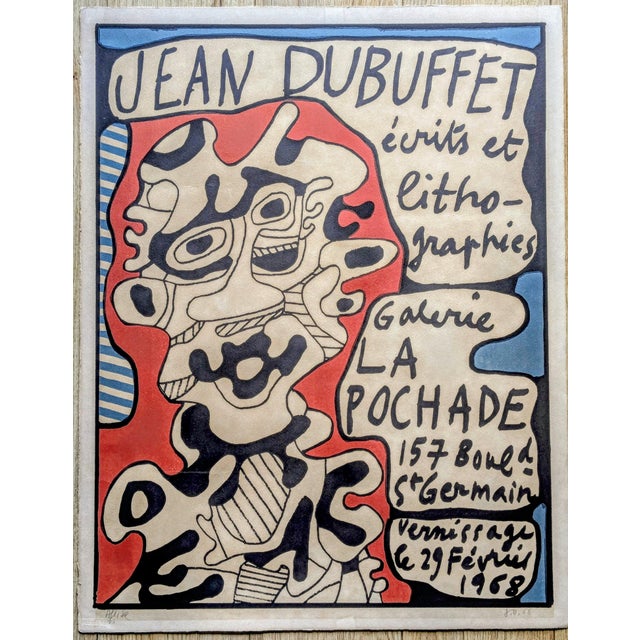 JEAN DUBUFFET
écrits et
litho-
graphies
Galerie
LA
POCHADE
157 Bould
St Germain
Vernissage
le 29 Février
1968
J.D. 68